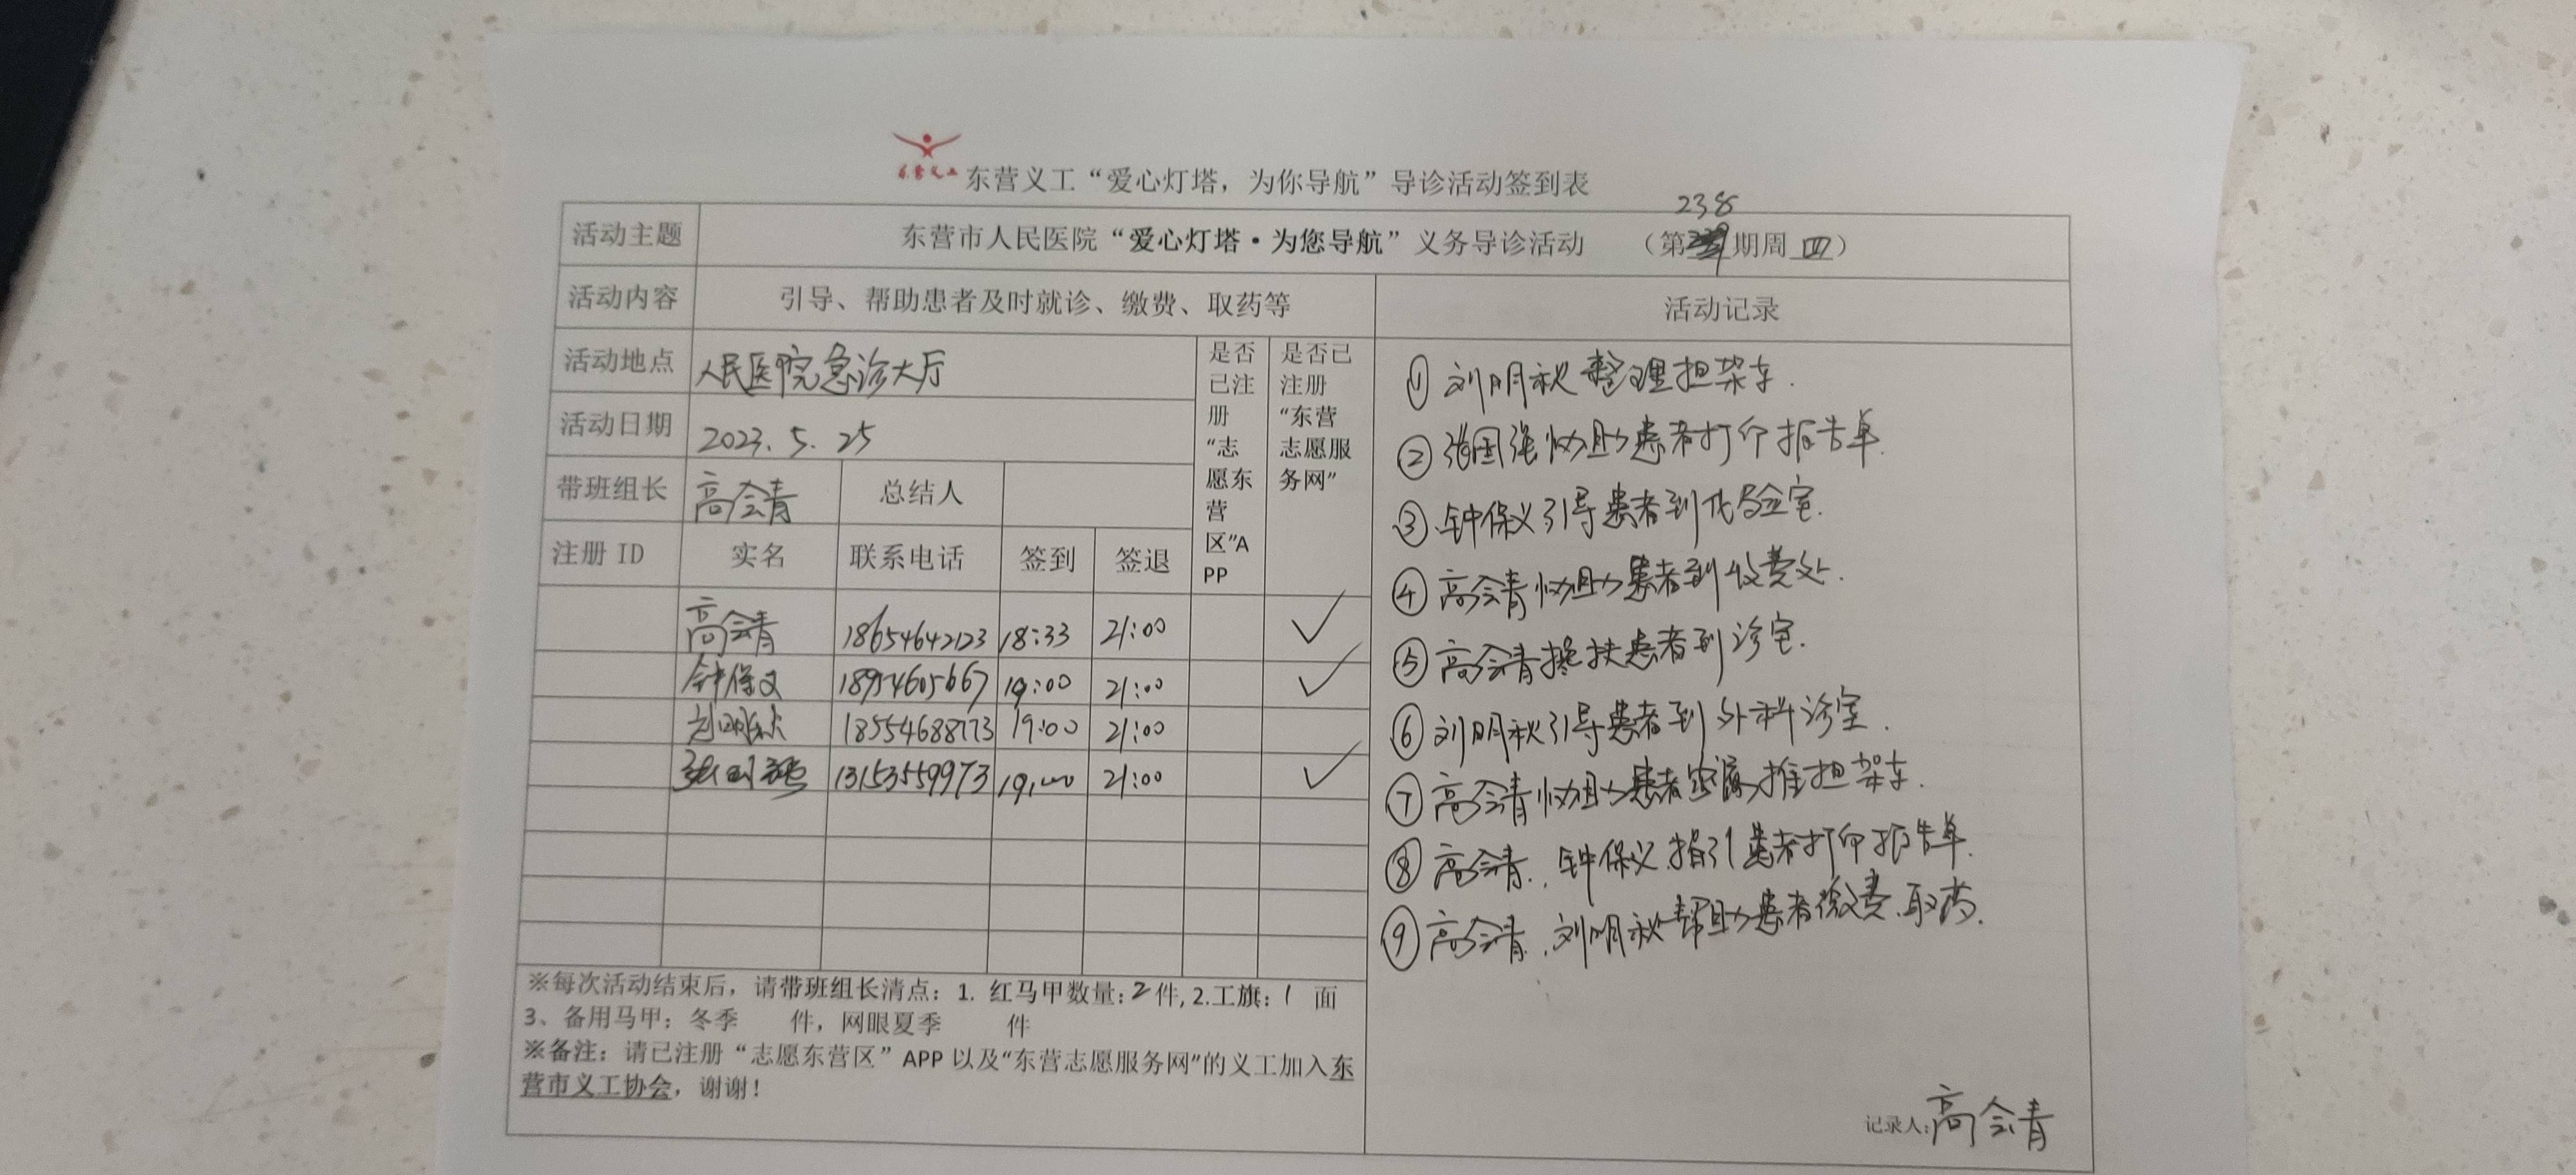 东营义工
东营义工“爱心灯塔，为你导航”导诊活动签到表
238
活动主题 东营市人民医院“爱心灯塔·为您导航”义务导诊活动 （第期周四）
活动内容 引导、帮助患者及时就诊、缴费、取药等 活动记录
活动地点 人民医院急诊大厅
活动日期 2023.5.25
带班组长 高会青 总结人
是否
已注
册
“志
愿东
营
区”A
PP
是否已
注册
“东营
志愿服
务网”
注册 ID 实名 联系电话 签到 签退
高会青 18654642123 18:33 21:00 ✓
钟保义 18954605667 19:00 21:00 ✓
刘明秋 18554688773 19:00 21:00
张国强 13153559973 19:00 21:00 ✓
※每次活动结束后，请带班组长清点：1. 红马甲数量：2件, 2.工旗：1 面
3、备用马甲：冬季 件，网眼夏季 件
※备注：请已注册“志愿东营区”APP 以及“东营志愿服务网”的义工加入东
营市义工协会，谢谢！
① 刘明秋整理担架车.
② 张国强协助患者打印报告单.
③ 钟保义引导患者到化验室.
④ 高会青协助患者到收费处.
⑤ 高会青搀扶患者到诊室.
⑥ 刘明秋引导患者到外科诊室.
⑦ 高会青协助患者家属推担架车.
⑧ 高会青、钟保义指引患者打印报告单.
⑨ 高会青、刘明秋帮助患者缴费、取药.
记录人：高会青